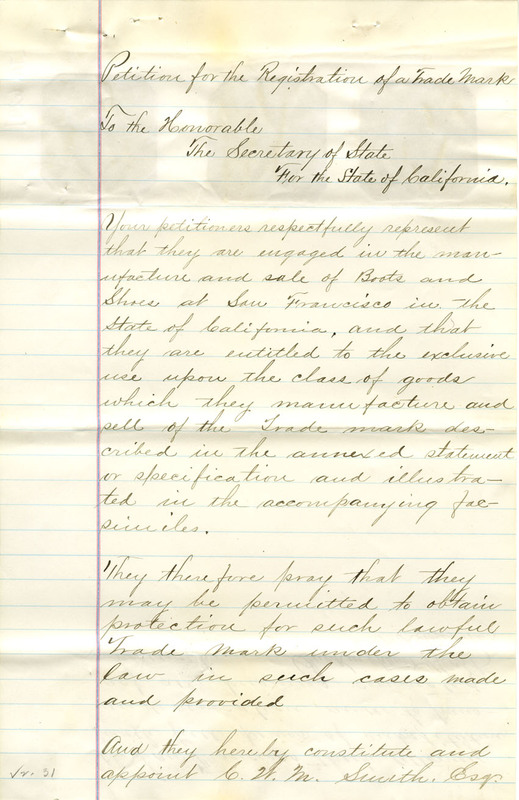 Petition for the Registration of a Trade Mark
To the Honorable
The Secretary of State
For the State of California.
Your petitioners respectfully represent
that they are engaged in the man-
ufacture and sale of Boots and
Shoes at San Francisco in the
State of California, and that
they are entitled to the exclusive
use upon the class of goods
which they manufacture and
sell of the Trade mark des-
cribed in the annexed statement
or specification and illustra-
ted in the accompanying fac-
similes.
They therefore pray that they
may be permitted to obtain
protection for such lawful
Trade Mark under the
law in such cases made
and provided
And they hereby constitute and
appoint C. W. M. Smith. Esq.
31